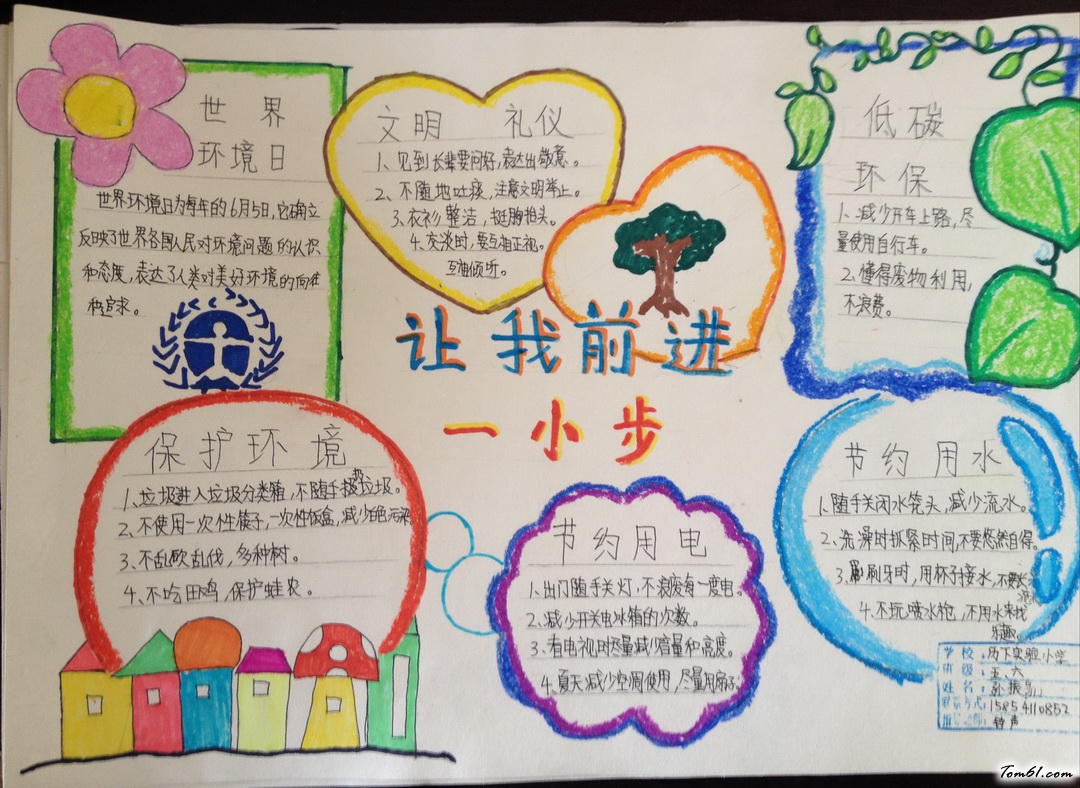 世界
环境日
世界环境日为每年的6月5日,它确立
反映了世界各国人民对环境问题的认识
和态度,表达了人类对美好环境的向往
和追求。
文明 礼仪
1、见到长辈要问好,表达出敬意。
2、不随地吐痰,注意文明举止。
3、衣衫整洁,挺胸抬头。
4、交谈时,要互相正视。
互相倾听。
低碳
环保
1、减少开车上路,尽
量使用自行车。
2、懂得废物利用,
不浪费。
让我前进
一小步
保护环境
1、垃圾进入垃圾分类箱,不随手扔垃圾。
2、不使用一次性筷子,一次性饭盒,减少白色污染
3、不乱砍乱伐,多种树。
4、不吃田鸡,保护蛙农。
节约用电
1、出门随手关灯,不浪废每一度电。
2、减少开关电冰箱的次数。
3、看电视时尽量减少音量和高度。
4、夏天减少空调使用,尽量用扇子
节约用水
1、随手关闭水笼头,减少流水。
2、洗澡时抓紧时间,不要悠然自得。
3、刷牙时,用杯子接水,不要
4、不玩喷水枪,不用水来找
乐趣。
学校:历下实验小学
班级:五六
姓名:孙振
联系方式:15854110852
指导老师:钟声
Tom61.com